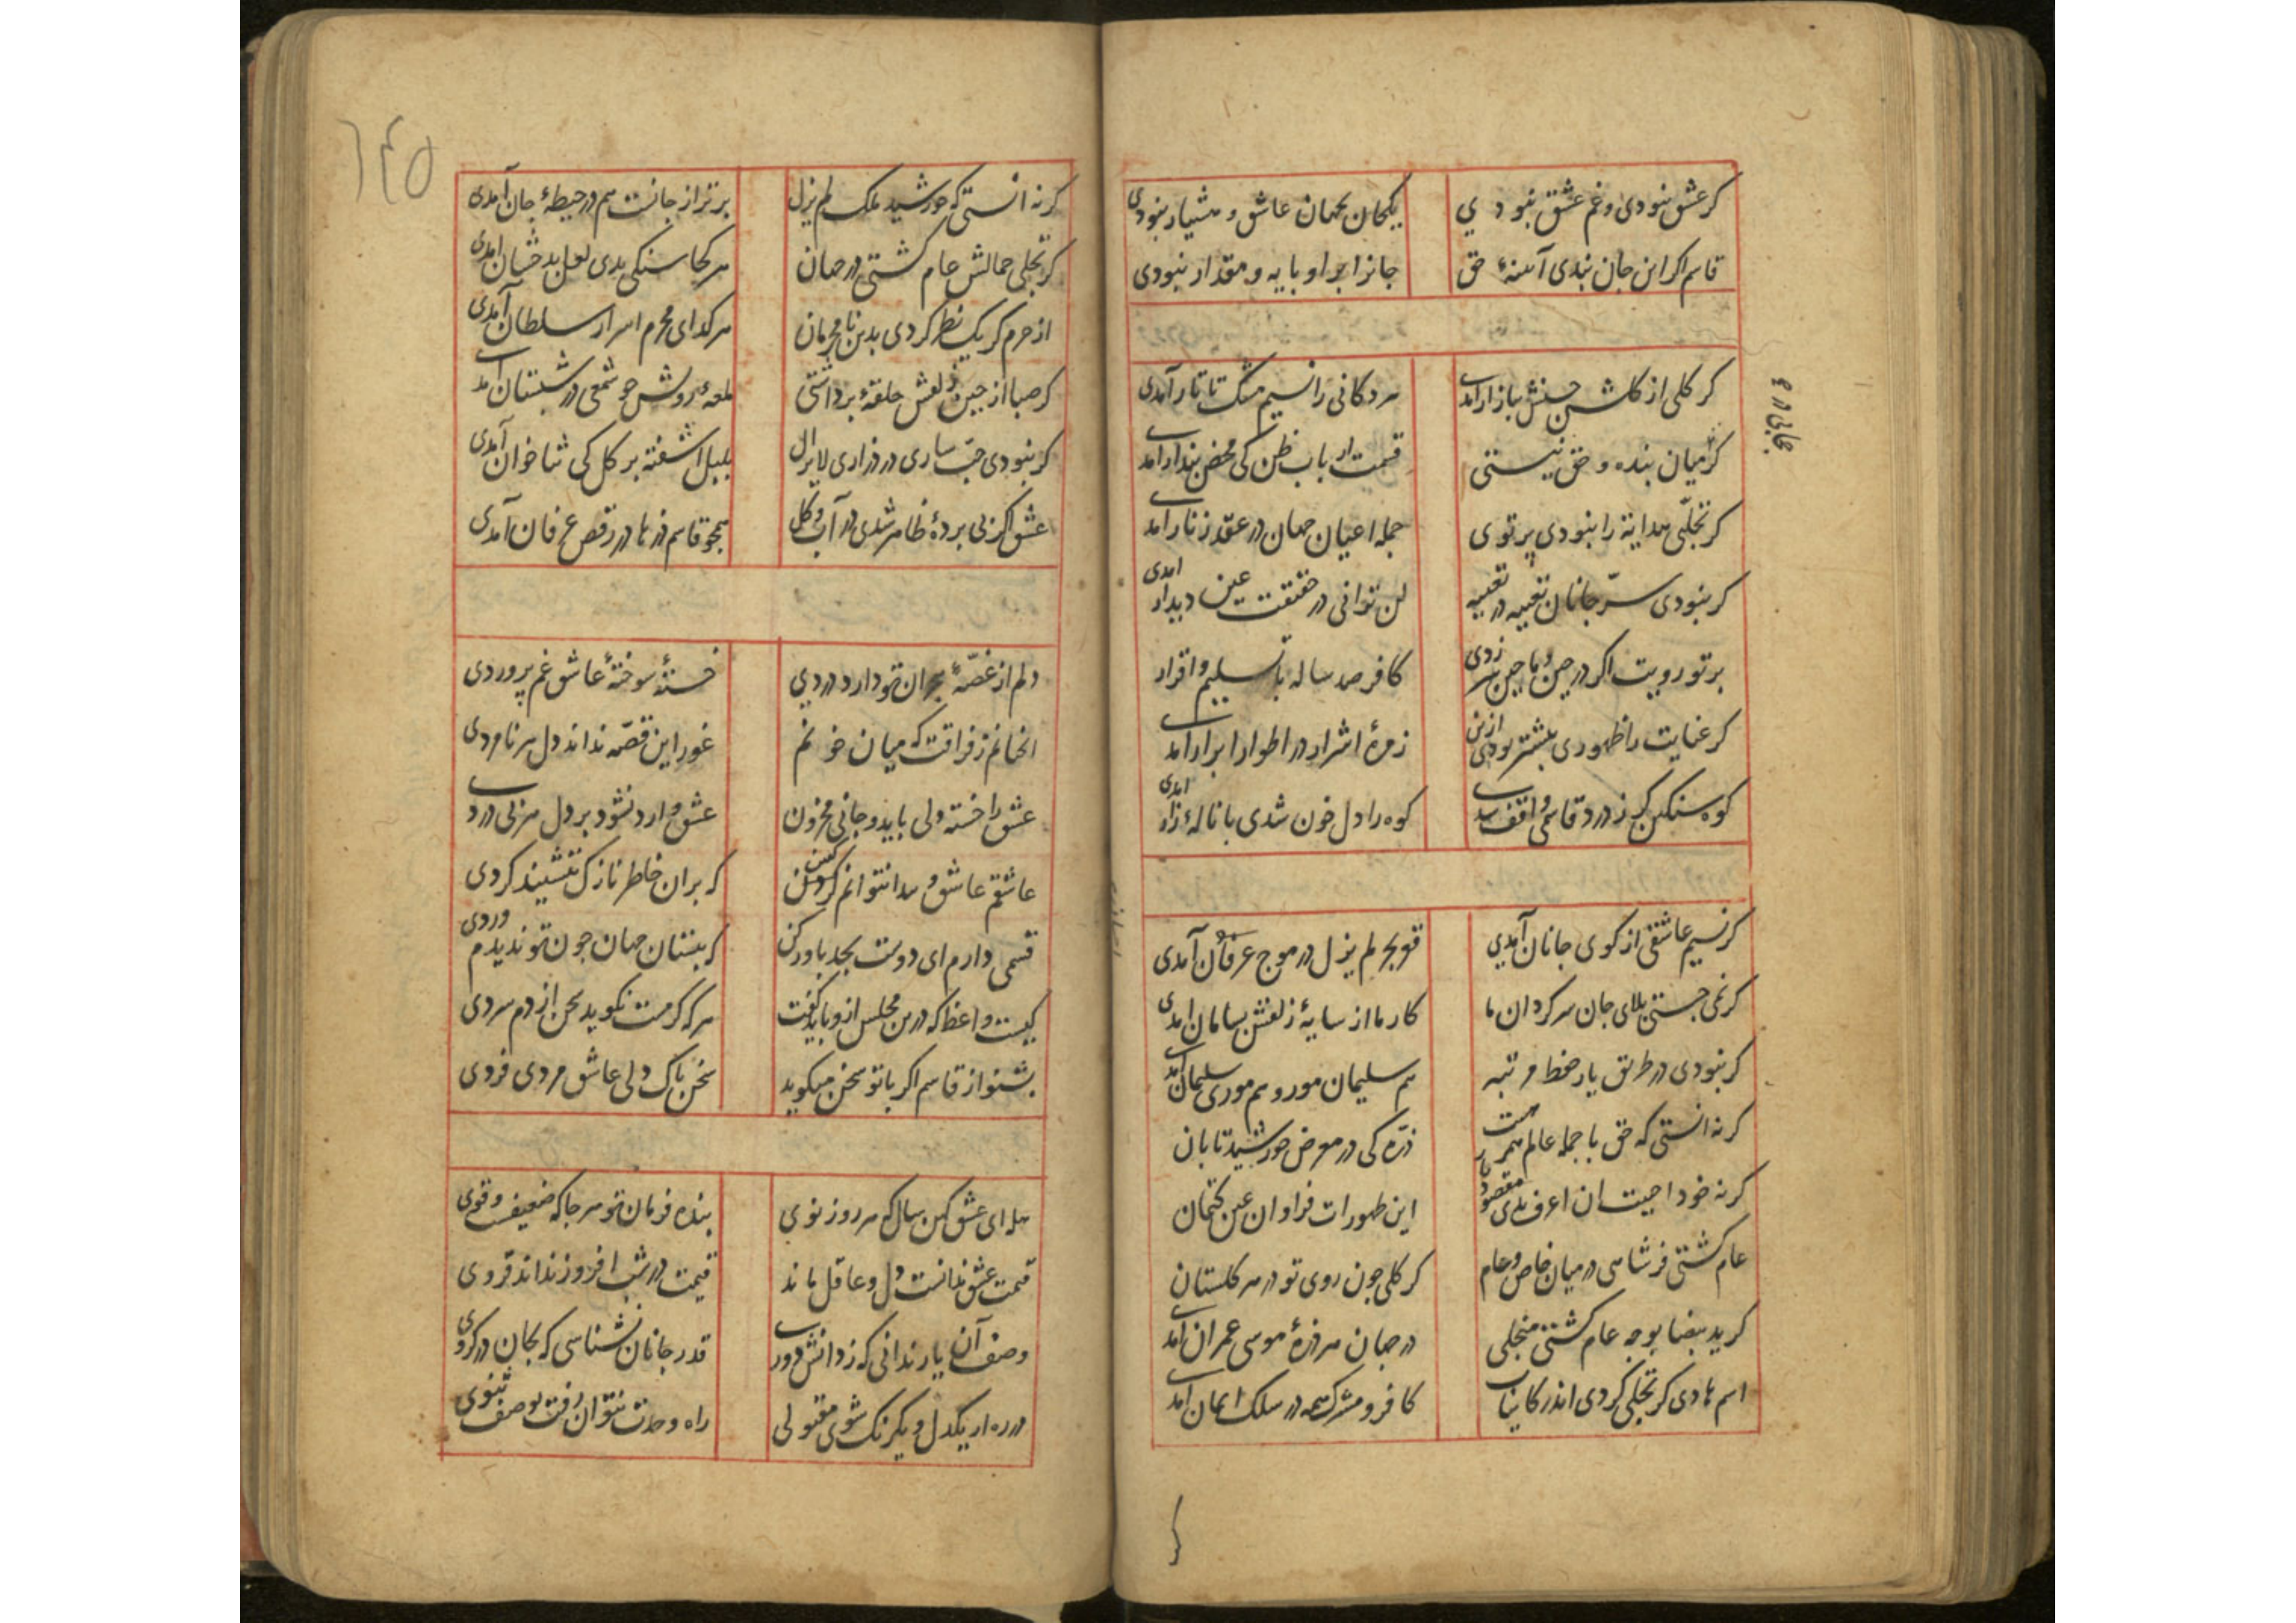 گر عشق نبودی و غم عشق نبودی
یکجان بجهان عاشق و هشیار نبودی
قاسم اگر این جان نبدی آینهٔ حق
جانرا بر او پایه و مقدار نبودی
گر گلی از گلشن حسنش ببازار آمدی
هر دکانی را نسیم مشک تاتار آمدی
گر میان بنده و حق نیستی
قسمت ارباب ظن کی محض پندار آمدی
گر تجلّی هدایة را نبودی پرتوی
جمله اعیان جهان در عقد زنار آمدی
گر نبودی سرّ جانان تعبیه در تعبیه
لن ترانی در حقیقت عین دیدار آمدی
پرتو رویت اگر در چین و ماچین سر زدی
کافر صد ساله با تسلیم و اقرار
گر عنایت را ظهوری بیشتر بودی ازین
زمرهٔ اشرار در اطوار ابرار آمدی
کوه سنگین گر ز درد قاسمی واقف شدی
کوه را دل خون شدی با نالهٔ زار آمدی
گر نسیم عاشقی از کوی جانان آمدی
قعر بحر لم یزل در موج عرفان آمدی
گر نمی جستی بلای جان سرگردان ما
کار ما از سایهٔ زلفش بسامان آمدی
گر نبودی در طریق یار حفظ مرتبه
هم سلیمان مور و هم موری سلیمان آمدی
گر نه انستی که حق با جمله عالم همرهست
ذرّه کی در معرض خورشید تابان
گر نه خود احببت ان اعرف بدی مقصود یار
این ظهورات فراوان عین کتمان
عام گشتی فرشاهی در میان خاص و عام
گر گلی چون روی تو در هر گلستان
گر ید بیضا بوجه عام گشتی منجلی
در جهان هر ذرهٔ موسی عمران آمدی
اسم هادی گر تجلی کردی اندر کاینات
کافر و مشرک همه در سلک ایمان آمدی
۱۴۵
گر نه انستی که خورشید ملک لم یزل
برتر از جانست هم در حیطهٔ جان آمدی
گر تجلی جمالش عام گشتی در جهان
هر کجا سنگی بدی لعل بدخشان آمدی
از حرم گر یک نظر کردی بدین نامحرمان
هر گدای محرم اسرار سلطان آمدی
گر صبا از جین زلفش حلقهٔ برداشتی
لمعهٔ رویش چو شمعی در شبستان آمدی
گر نبودی حبّ ساری در ذراری لایزال
بلبل آشفته بر گل کی ثنا خوان آمدی
عشق اگر بی پردهٔ ظاهر شدی در آب و گل
همچو قاسم ذرها در رقص عرفان آمدی
دلم از غصّهٔ هجران تو دارد دردی
خستهٔ سوختهٔ عاشق غم پروردی
انچنانم ز فراقت که میان خونم
غور این قصّه نداند دل هر نامردی
عشق را خسته دلی باید و جانی محزون
عشق وارد نشود بر دل هر بی دردی
عاشقم عاشق و پیدا نتوانم کردن
که بران خاطر نازک ننشیند گردی
قسمی دارم ای دوست بجد باور کن
که ببستان جهان چون تو ندیدم وردی
کیست واعظ که درین مجلس ازو باید گفت
هر که گرمت نگوید سخن از دم سردی
بشنو از قاسم اگر با تو سخن میگوید
سخن پاک دلی عاشق مردی فردی
هله ای عشق کهن سال که هر روز نوی
بنده فرمان تو هر جا که ضعیفست و قوی
قیمت عشق ندانست دل و عاقل ماند
قیمت در شب افروز نداند قروی
وصف آن یار ندانی که ز دانش دوری
قدر جانان نشناسی که بجان در گروی
در ره ار یکدل و یکرنگ شوی مقبولی
راه وحدت نتوان رفت بوصف ثنوی